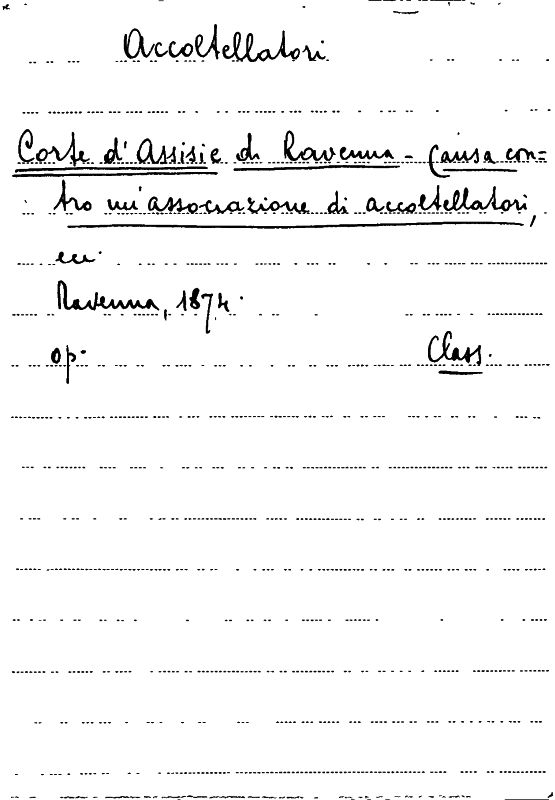 Accoltellatori
Corte d'Assisie di Ravenna - Causa con=
tro un'associazione di accoltellatori,
ecc.
Ravenna, 1874.
op. Class.